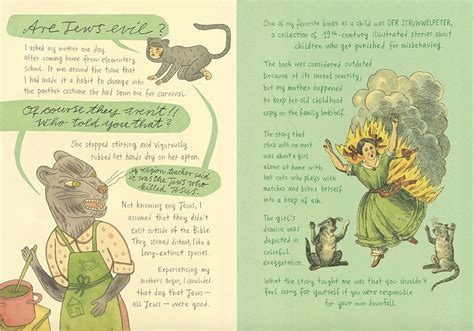 Are Jews evil?
I asked my mother one day
after coming home from elementary
school. It was around the time that
I had made it a habit to change into
the panther costume she had sewn me for carnival.
Of course they aren't!!
Who told you that?
She stopped stirring and vigorously
rubbed her hands dry on her apron.
My religion teacher said
it was the Jews who
killed Jesus.
Not knowing any Jews, I
assumed that they didn't
exist outside of the Bible.
They seemed distant, like a
long-extinct species.
Experiencing my
mother's anger, I concluded
that day that Jews —
all Jews — were good.
One of my favorite books as a child was DER STRUWWELPETER,
a collection of 19th-century illustrated stories about
children who get punished for misbehaving.
The book was considered outdated
because of its moral severity,
but my mother happened
to keep her old childhood
copy on the family bookshelf.
The story that
stuck with me most
was about a girl
alone at home with
her cats who plays with
matches and burns herself
into a heap of ash.
The girl's
demise was
depicted in
colorful
exaggeration.
What the story taught me was that you shouldn't
feel sorry for yourself if you were responsible
for your own downfall.